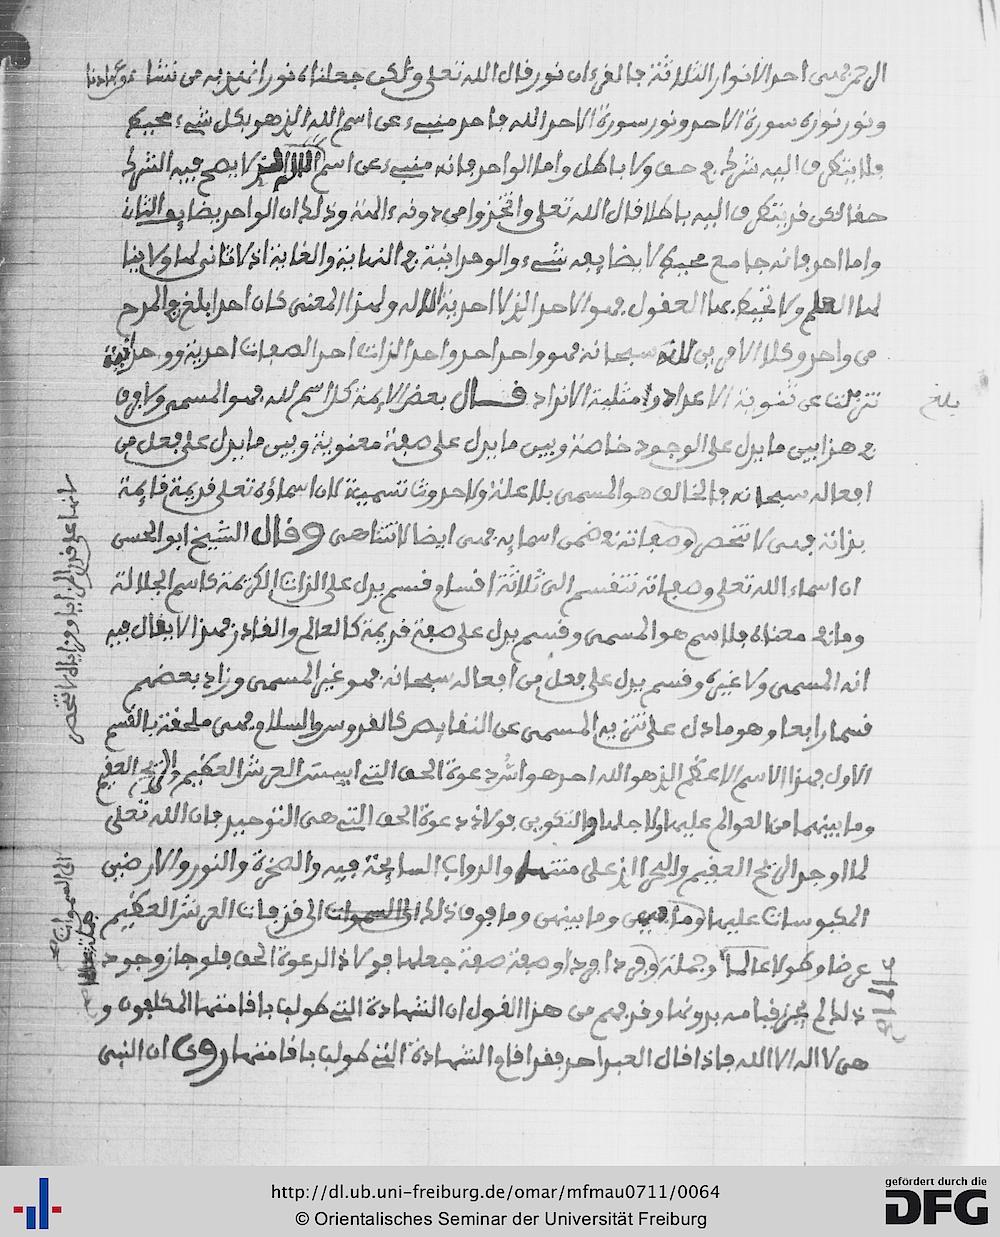 الرحمن فهي احد الانوار الثلاثة فالقرءان نور قال الله تعلى ولكن جعلناه نورا نهدي به من نشاء من عبادنا
ونور نوره سورة الاحد ونور سورة الاحد الله فاحد منبئ عن اسم الله الذي هو بكل شيء محيط
فلا يتطرق اليه شرك في حق ولا باطل واما الواحد فانه منبئ عن اسم الاله الذي لا يصح فيه الشرك
حقا لكن قد يتطرق اليه باطلا قال الله تعلى واتخذوا من دونه ءالهة وذلك ان الواحد يضايفه الثان
واما احد فانه جامع محيط لا يضايفه شيء والوحدانية في النهاية والغاية اذ لا ثاني لها ولا
لها العلم ولا تحيط بها العقول فهو الاحد الذي لا احدية الا له ولهذا المعنى كان احد ابلغ في المدح
من واحد وكلا الامرين لله سبحانه فهو واحد احد واحد الذات احد الصفات احدية ووحدانية
تنزهت عن تثنوية الاعداد وامثلية الانداد قال بعض الايمة كل اسم لله فهو المسمى ولا فرق
بلغ
في هذا بين ما يدل على الوجود خاصة وبين ما يدل على صفة معنوية وبين ما يدل على فعل من
افعاله سبحانه فالخالق هو المسمى بلا علة ولا حدوث تسمية لان اسماؤه تعلى قديمة قايمة
بذاته فهي لا تنحصر وصفاته في ضمن اسمايه فهي ايضا لا تتناهى وقال الشيخ ابو الحسن
ان اسماء الله تعلى وصفاته تنقسم الى ثلاثة اقسام قسم يدل على الذات الكريمة كاسم الجلالة
وما في معناه فالاسم هو المسمى وقسم يدل على صفة قديمة كالعالم والقادر فهذا لا يقال فيه
انه المسمى ولا غيره وقسم يدل على فعل من افعاله سبحانه فهو غير المسمى وزاد بعضهم
قسما رابعا وهو ما دل على تنزيه المسمى عن النقايص كالقدوس والسلام فهي ملحقة بالقسم
الاول فهذا الاسم الاعظم الذي هو الله احد هو اشد دعوة الحق التي اسست العرش العظيم والريح العقيم
وما بينهما من العوالم عليها ولاجلها والتكوين فولاذ دعوة الحق التي هي التوحيد فان الله تعلى
لما اوجد الريح العقيم والبحر الذي على متنها والدواب السابحة فيه والصخرة والنور والارضين
المحبوسات عليها وما فيهن وما بينهن وما فوق ذلك الى السموات الى فرفات العرش العظيم
عرضا وطولا عالما وجملة وفردا فردا وصفة صفة جعلها فولاذ الدعوة الحق فلو جاز وجود
ذلك لم يجز قيامه بدونها وقد فهم من هذا القول ان الشهادة التي طولب باقامتها المكلفون و
هي لا اله الا الله فاذا قال العبد احد فقد اقام الشهادة التي طولب باقامتها روي ان النبي
http://dl.ub.uni-freiburg.de/omar/mfmau0711/0064
© Orientalisches Seminar der Universität Freiburg
gefördert durch die
DFG